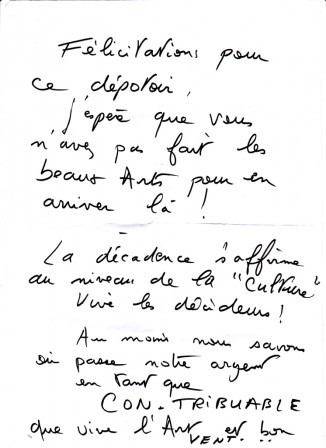 Félicitations pour
ce dépotoir,
j'espère que vous
n'avez pas fait les
beaux Arts pour en
arriver là !
La décadence s'affirme
au niveau de la "Culture"
Vive les décideurs !
Au moins nous savons
où passe notre argent
en tant que
CON.TRIBUABLE
que vive l'Art VENT. et bon